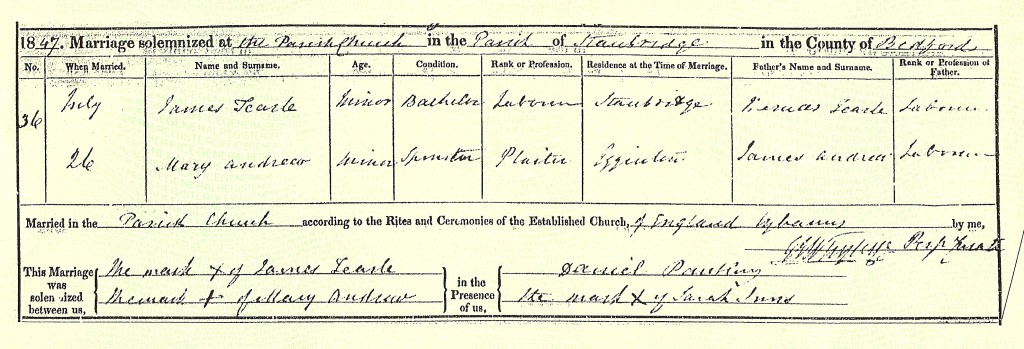 1847. Marriage solemnized at the Parish Church in the Parish of Stanbridge in the County of Bedford
No. When Married. Name and Surname. Age. Condition. Rank or Profession. Residence at the Time of Marriage. Father's Name and Surname. Rank or Profession of Father.
36 July James Tearle Minor Bachelor Labourer Stanbridge Tearle Labourer
26 Mary Andrew Minor Spinster Plaiter Eggington James Andrew Labourer
Married in the Parish Church according to the Rites and Ceremonies of the Established Church, of England by banns by me,
Perp Curate
This Marriage was solemnized between us, The mark X of James Tearle in the Presence of us, Daniel
The mark + of Mary Andrew the mark X of Sarah Inns